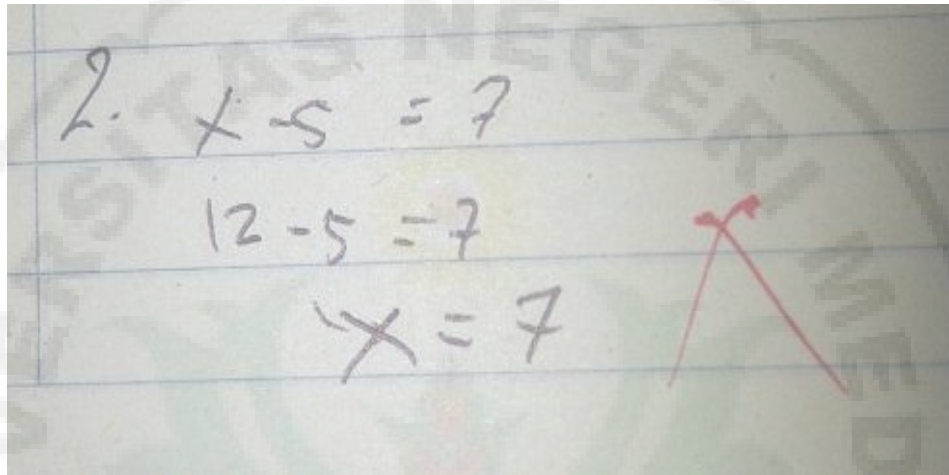 2. x - 5 = 7
12 - 5 = 7
x = 7